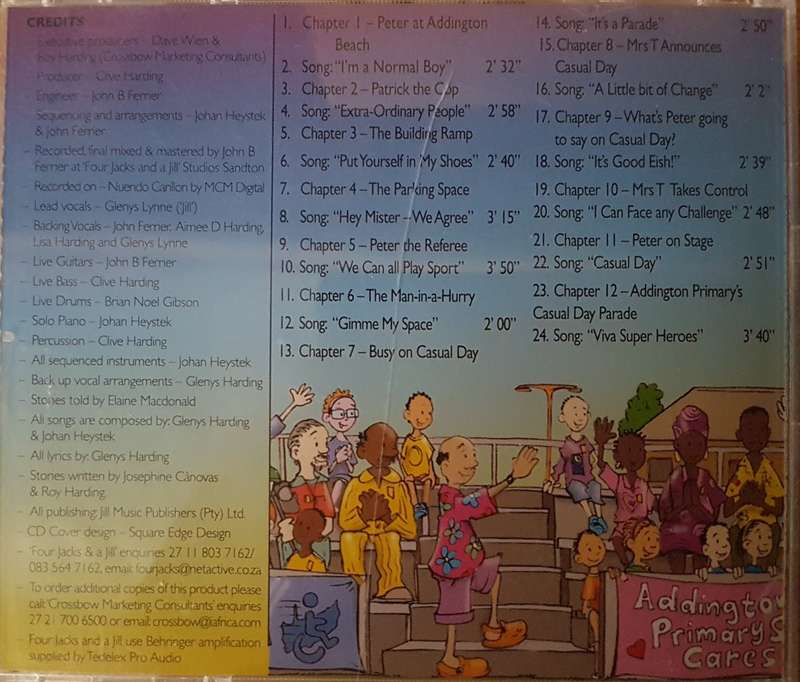 CREDITS
- Executive producers - Dave Wien &
Roy Harding (Crossbow Marketing Consultants)
- Producer - Clive Harding
- Engineer - John B Ferrier
- Sequencing and arrangements - Johan Heystek
& John Ferrier
- Recorded, final mixed & mastered by John B
Ferrier at 'Four Jacks and a Jill' Studios Sandton
- Recorded on - Nuendo Carillon by MCM Digital
- Lead vocals - Glenys Lynne ('Jill')
- Backing Vocals - John Ferrier, Aimee D Harding,
Lisa Harding and Glenys Lynne
- Live Guitars - John B Ferrier
- Live Bass - Clive Harding
- Live Drums - Brian Noel Gibson
- Solo Piano - Johan Heystek
- Percussion - Clive Harding
- All sequenced instruments - Johan Heystek
- Back up vocal arrangements - Glenys Harding
- Stories told by Elaine Macdonald
- All songs are composed by: Glenys Harding
& Johan Heystek
- All lyrics by: Glenys Harding
- Stories written by Josephine Cànovas
& Roy Harding.
- All publishing: Jill Music Publishers (Pty) Ltd.
- CD Cover design - Square Edge Design
- 'Four Jacks & a Jill' enquiries 27 11 803 7162/
083 564 7162, email: fourjacks@netactive.co.za
- To order additional copies of this product please
call 'Crossbow Marketing Consultants' enquiries
27 21 700 6500 or email: crossbow@iafrica.com
- Four Jacks and a Jill use Behringer amplification
supplied by Tedelex Pro Audio
1. Chapter 1 – Peter at Addington
Beach
2. Song: "I'm a Normal Boy" 2' 32"
3. Chapter 2 – Patrick the Cop
4. Song: "Extra-Ordinary People" 2' 58"
5. Chapter 3 – The Building Ramp
6. Song: "Put Yourself in My Shoes" 2' 40"
7. Chapter 4 – The Parking Space
8. Song: "Hey Mister – We Agree" 3' 15"
9. Chapter 5 – Peter the Referee
10. Song: "We Can all Play Sport" 3' 50"
11. Chapter 6 – The Man-in-a-Hurry
12. Song: "Gimme My Space" 2' 00"
13. Chapter 7 – Busy on Casual Day
14. Song: "It's a Parade" 2' 50"
15. Chapter 8 – Mrs T Announces
Casual Day
16. Song: "A Little bit of Change" 2' 2"
17. Chapter 9 – What's Peter going
to say on Casual Day?
18. Song: "It's Good Eish!" 2' 39"
19. Chapter 10 – Mrs T Takes Control
20. Song: "I Can Face any Challenge" 2' 48"
21. Chapter 11 – Peter on Stage
22. Song: "Casual Day" 2' 51"
23. Chapter 12 – Addington Primary's
Casual Day Parade
24. Song: "Viva Super Heroes" 3' 40"
Addington
Primary
Cares